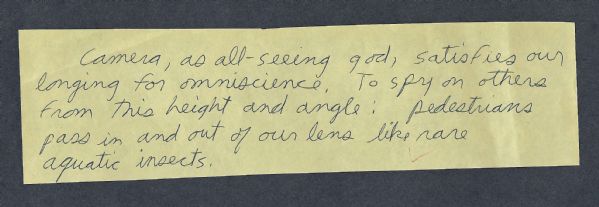 Camera, as all-seeing god, satisfies our
longing for omniscience. To spy on others
from this height and angle: pedestrians
pass in and out of our lens like rare
aquatic insects.